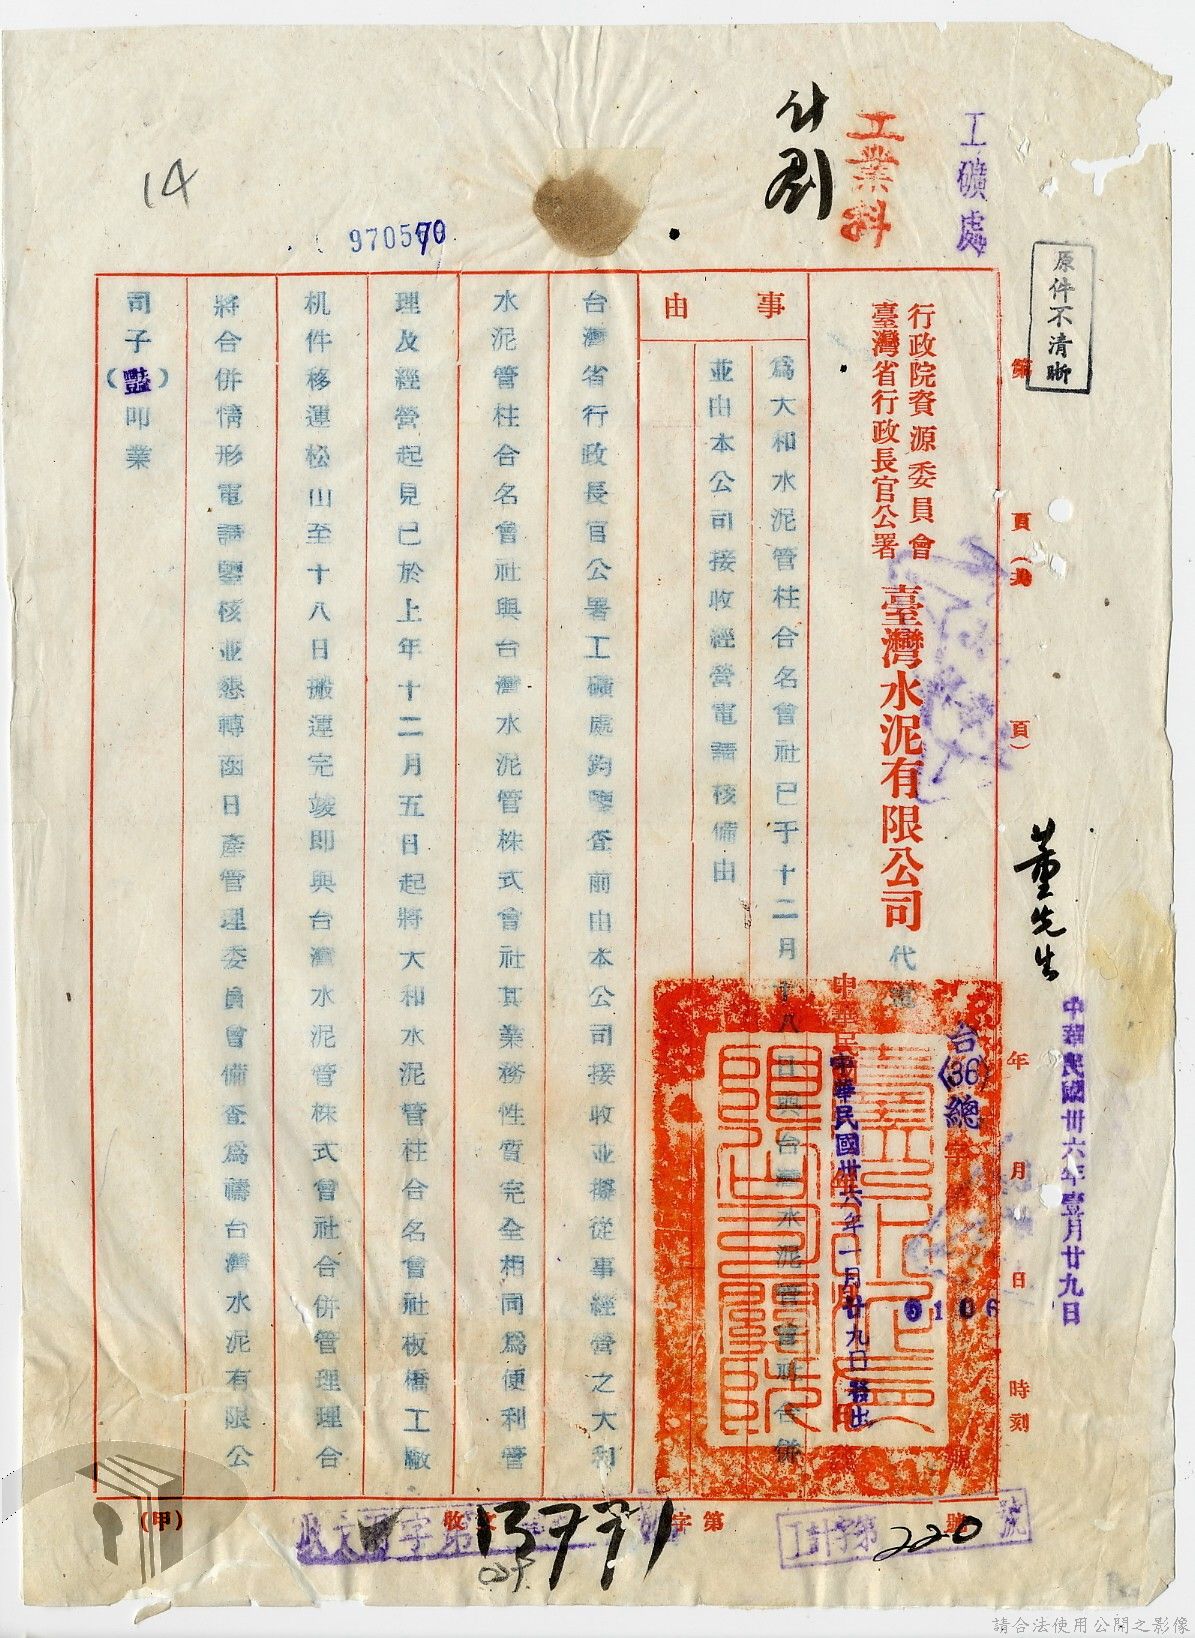 工礦處
工業科
計劃
14
970570
原件不清晰
第 頁(共 頁)
董先生
中華民國卅六年壹月廿九日
年 月 日 時刻
行政院資源委員會
臺灣省行政長官公署
臺灣水泥有限公司
代電
台(36)總字
0106
號
中華民國卅六年一月廿九日發出
事由
爲大和水泥管柱合名會社已于十二月十八日與台灣水泥管會社合併
並由本公司接收經營電請核備由
台灣省行政長官公署工礦處鈞鑒查前由本公司接收並擬從事經營之大和
水泥管柱合名會社與台灣水泥管株式會社其業務性質完全相同爲便利管
理及經營起見已於上年十二月五日起將大和水泥管柱合名會社板橋工廠
机件移運松山至十八日搬運完竣即與台灣水泥管株式會社合併管理理合
將合併情形電請鑒核並懇轉函日產管理委員會備查爲禱台灣水泥有限公
司子( )叩業
(甲)
收文 字第 號
收文礦字第
13771
工計字第220號
請合法使用公開之影像